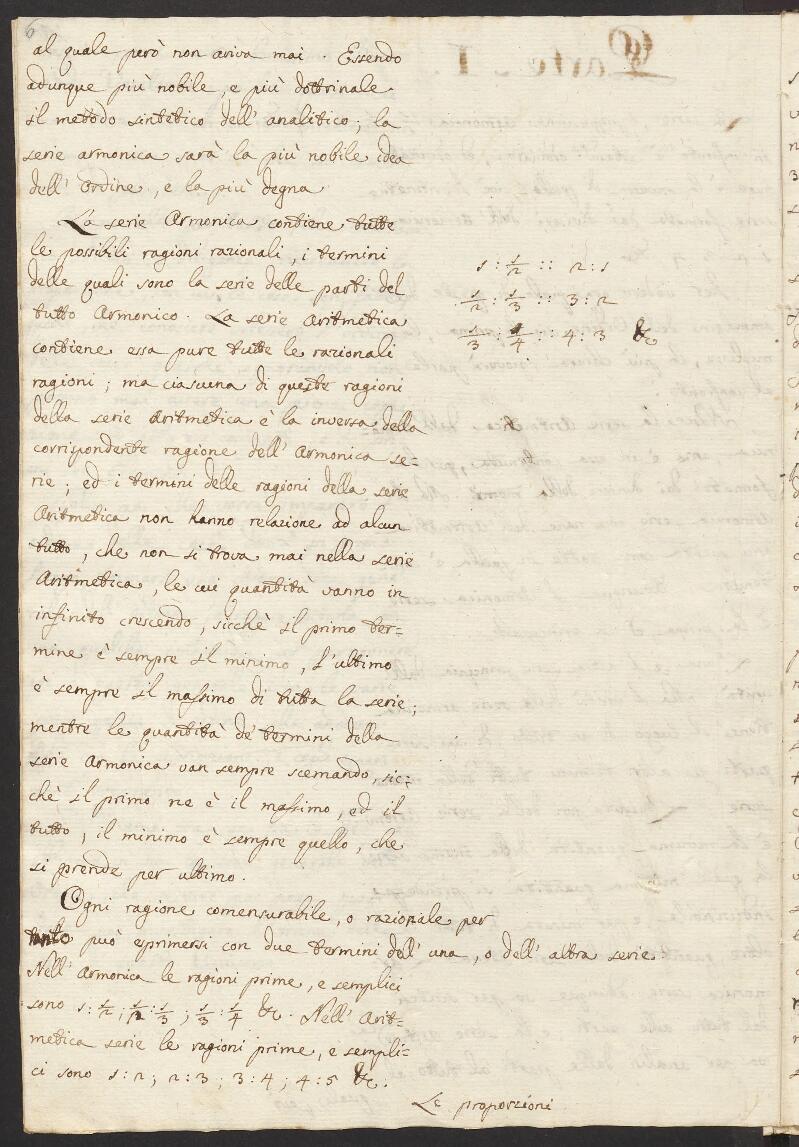 6
al quale però non ariva mai. Essendo
adunque più nobile, e più dottrinale
il metodo sintetico dell' analitico; la
serie armonica sarà la più nobile idea
dell' Ordine, e la più degna
La serie Armonica contiene tutte
le possibili ragioni razionali, i termini
delle quali sono la serie delle parti del
tutto Armonico. La serie Aritmetica
contiene essa pure tutte le razionali
ragioni; ma ciascuna di queste ragioni
della serie Aritmetica è la inversa della
corrispondente ragione dell' Armonica se=
rie; ed i termini delle ragioni della serie
Aritmetica non hanno relazione ad alcun
tutto, che non si trova mai nella serie
Aritmetica, le cui quantità vanno in
infinito crescendo, sicchè il primo ter=
mine è sempre il minimo, l'ultimo
è sempre il massimo di tutta la serie;
mentre le quantità de' termini della
serie Armonica van sempre scemando, sic=
chè il primo ne è il massimo, ed il
tutto, il minimo è sempre quello, che
si prende per ultimo.
1 : 1/2 :: 2 : 1
1/2 : 1/3 :: 3 : 2
1/3 : 1/4 :: 4 : 3 &c
Ogni ragione comensurabile, o razionale per
tanto può esprimersi con due termini dell' una, o dell' altra serie.
Nell' Armonica le ragioni prime, e semplici
sono 1 : 1/2 ; 1/2 : 1/3 ; 1/3 : 1/4 &c. Nell' Arit=
metica serie le ragioni prime, e sempli=
ci sono 1 : 2 ; 2 : 3 ; 3 : 4 ; 4 : 5 &c.
Le proporzioni